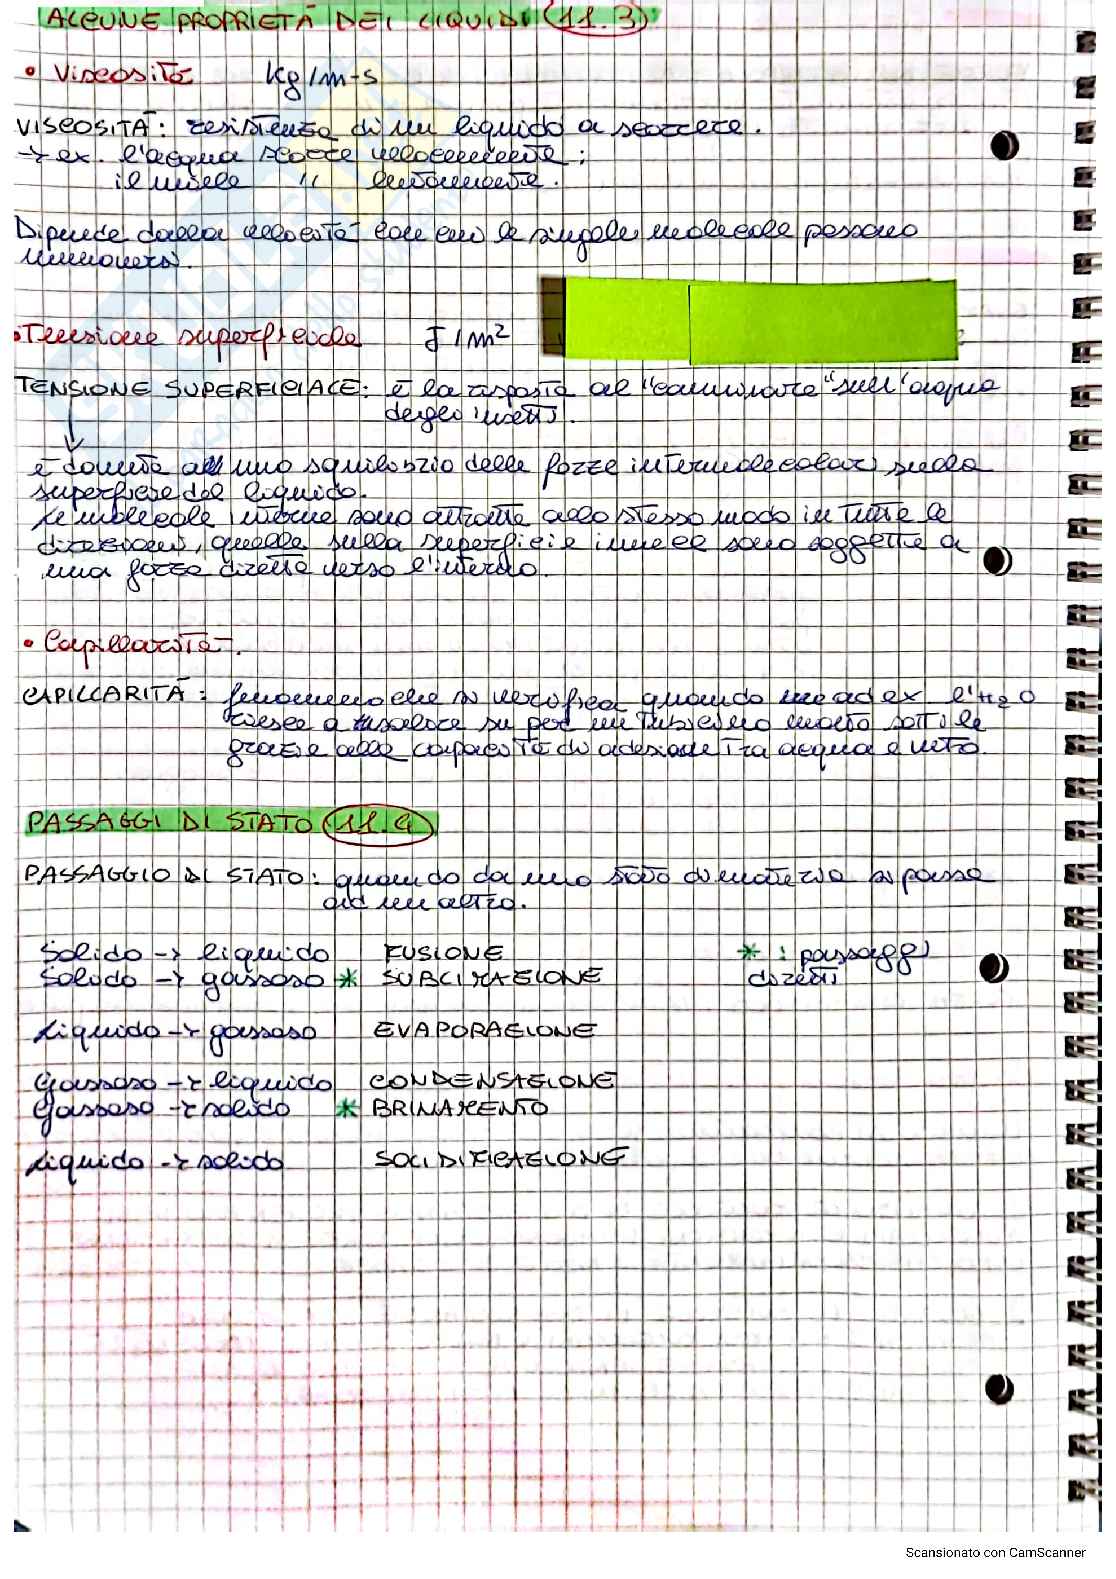 ALCUNE PROPRIETÀ DEI LIQUIDI (11.3)
• Viscosità kg/m-s
VISCOSITÀ: resistenza di un liquido a scorrere.
→ ex. l'acqua scorre velocemente;
il miele " lentamente.
Dipende dalla velocità con cui le singole molecole possono
muoversi.
• Tensione superficiale J/m²
TENSIONE SUPERFICIALE: è la risposta al "camminare" sull'acqua
degli insetti.
è dovuta ad uno squilibrio delle forze intermolecolari sulla
superficie del liquido.
Le molecole interne sono attratte allo stesso modo in tutte le
direzioni, quelle sulla superficie invece sono soggette a
una forza diretta verso l'interno.
• Capillarità.
CAPILLARITÀ: fenomeno che si verifica quando ad ex l'H₂O
riesce a risalire su per un tubicino molto sottile
grazie alle capacità di adesione tra acqua e vetro.
PASSAGGI DI STATO (11.4)
PASSAGGIO DI STATO: quando da uno stato di materia si passa
ad un altro.
Solido → liquido FUSIONE * : passaggi
Solido → gassoso * SUBLIMAZIONE diretti
Liquido → gassoso EVAPORAZIONE
Gassoso → liquido CONDENSAZIONE
Gassoso → solido * BRINAMENTO
Liquido → solido SOLIDIFICAZIONE
Scansionato con CamScanner